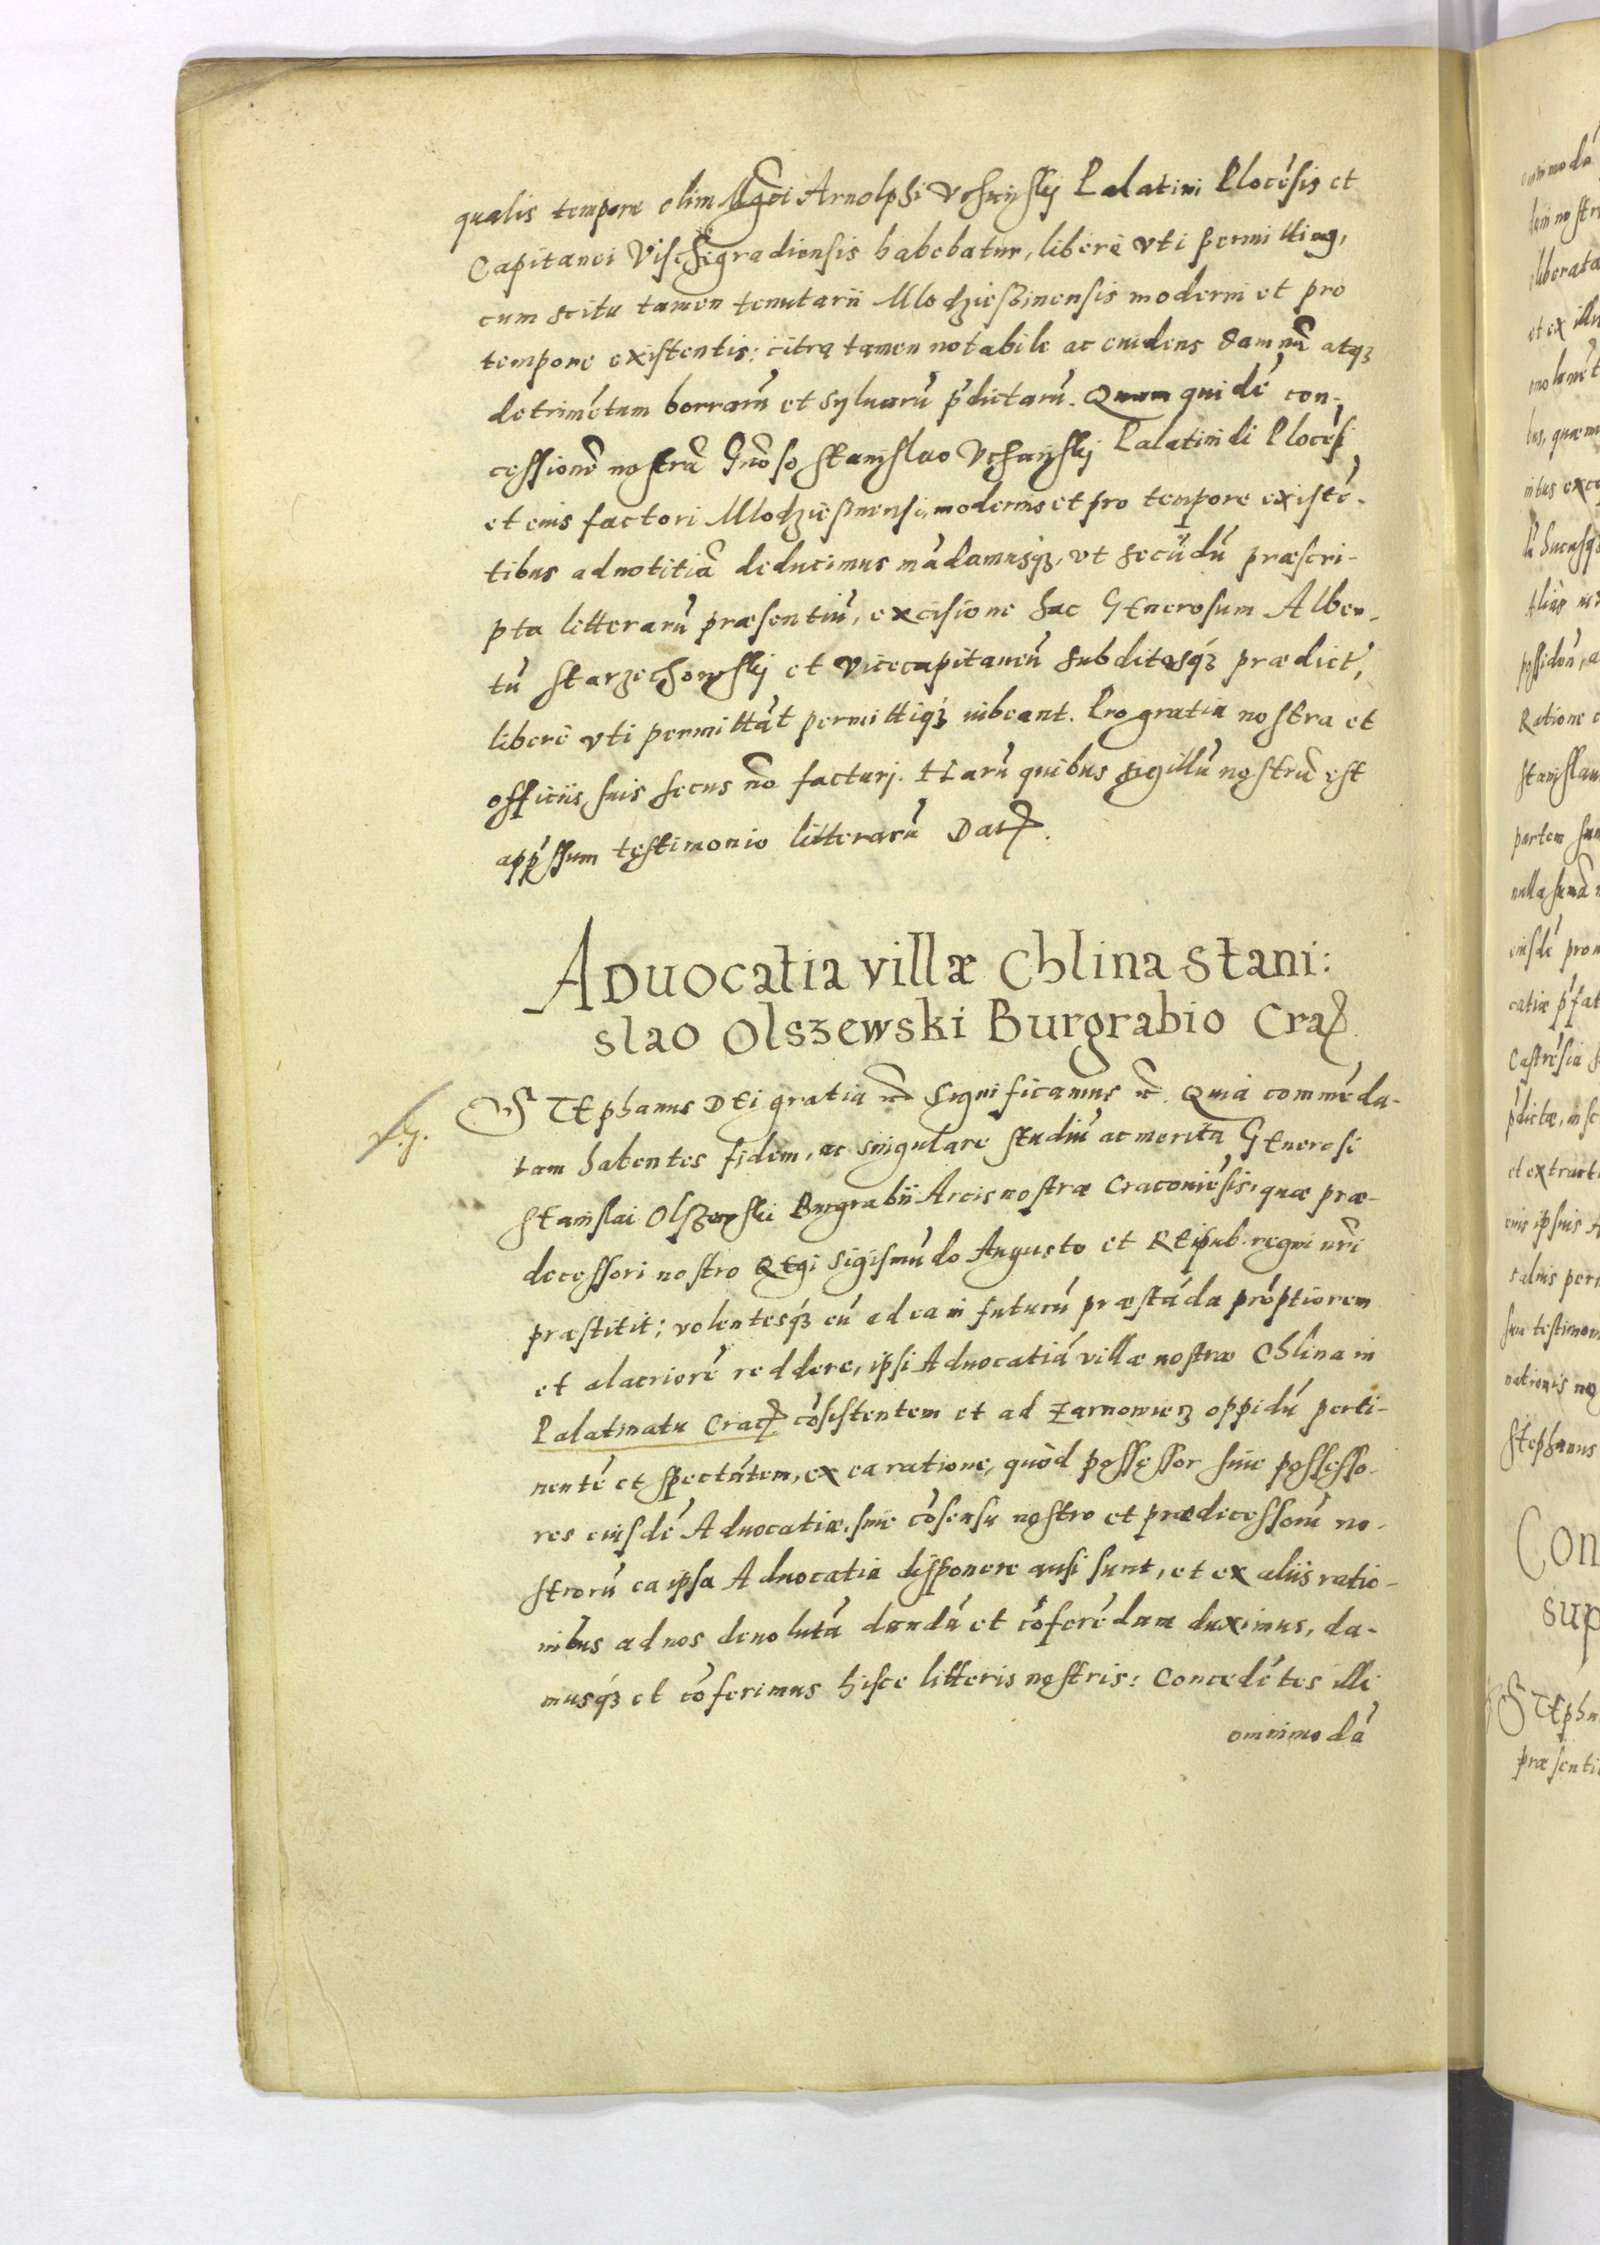 qualis tempore olim Mgci Arnolphi Vchańskj Palatini Plocésis et
Capitanei Vischegradiensis habebatur, liberè vti permitting,
cum scitu tamen tenutarii Mlodzieszinensis moderni et pro
tempore existentis: citra tamen notabile ac euidens damnũ atqз
detrimétum borrarũ et syluarũ p̃dictarũ. Quam quidé con-
cessionẽ nostrã Gnõso Stanislao Vchańskj Palatinidi Plocésj
et eius factori Mlodzieszinensi, modernis et pro tempore existẽ-
tibus ad notitiã deducimus mãdamusqз, vt secũdũ præscri-
pta litterarũ præsentiũ, excisione hac GEnerosum Alber-
tũ Starzechowskj et vicecapitaneũ subditosqз prædict,
liberè vti permittãt permittiqз iubeant. Pro gratia nostra et
officiis suis secus nõ facturj. Harũ quibus sigillũ nostrũ est
app̃ssum testimonio litterarũ Dat.
ADuocatia villæ Chlina Stani:
slao Olszewski Burgrabio Crac
STEphanus DEi gratia &c Significamus &c. Quia comméda-
v.g.
tam habentes fidem, ac singulare studiũ ac merita GEnerosi
Stanislai Olszewski Burgrabii Arcis nostræ Cracouiésis, quæ præ-
decessori nostro REgi Sigismũdo Augusto et REipub: regni nr̃i
præstitit; volentesqз eũ ad ea in futurũ præstáda próptiorem
et alacrioré reddere, ipsi Aduocatiã villæ nostræ Chlina in
Palatinatu Crac cõsistentem et ad Zarnowiecz oppidũ perti-
nenté et spectátem, ex ea ratione, quòd possessor siue possesso-
res eiusdé Aduocatiæ, sine cõsensu nostro et prædecessorũ no-
strorũ ea ipsa Aduocatia disponere ausi sunt, et ex aliis ratio-
nibus ad nos deuolutã dandã et cõferédam duximus, da-
musqз et cõferimus hisce litteris nostris: Concedétes illi
omnimodã